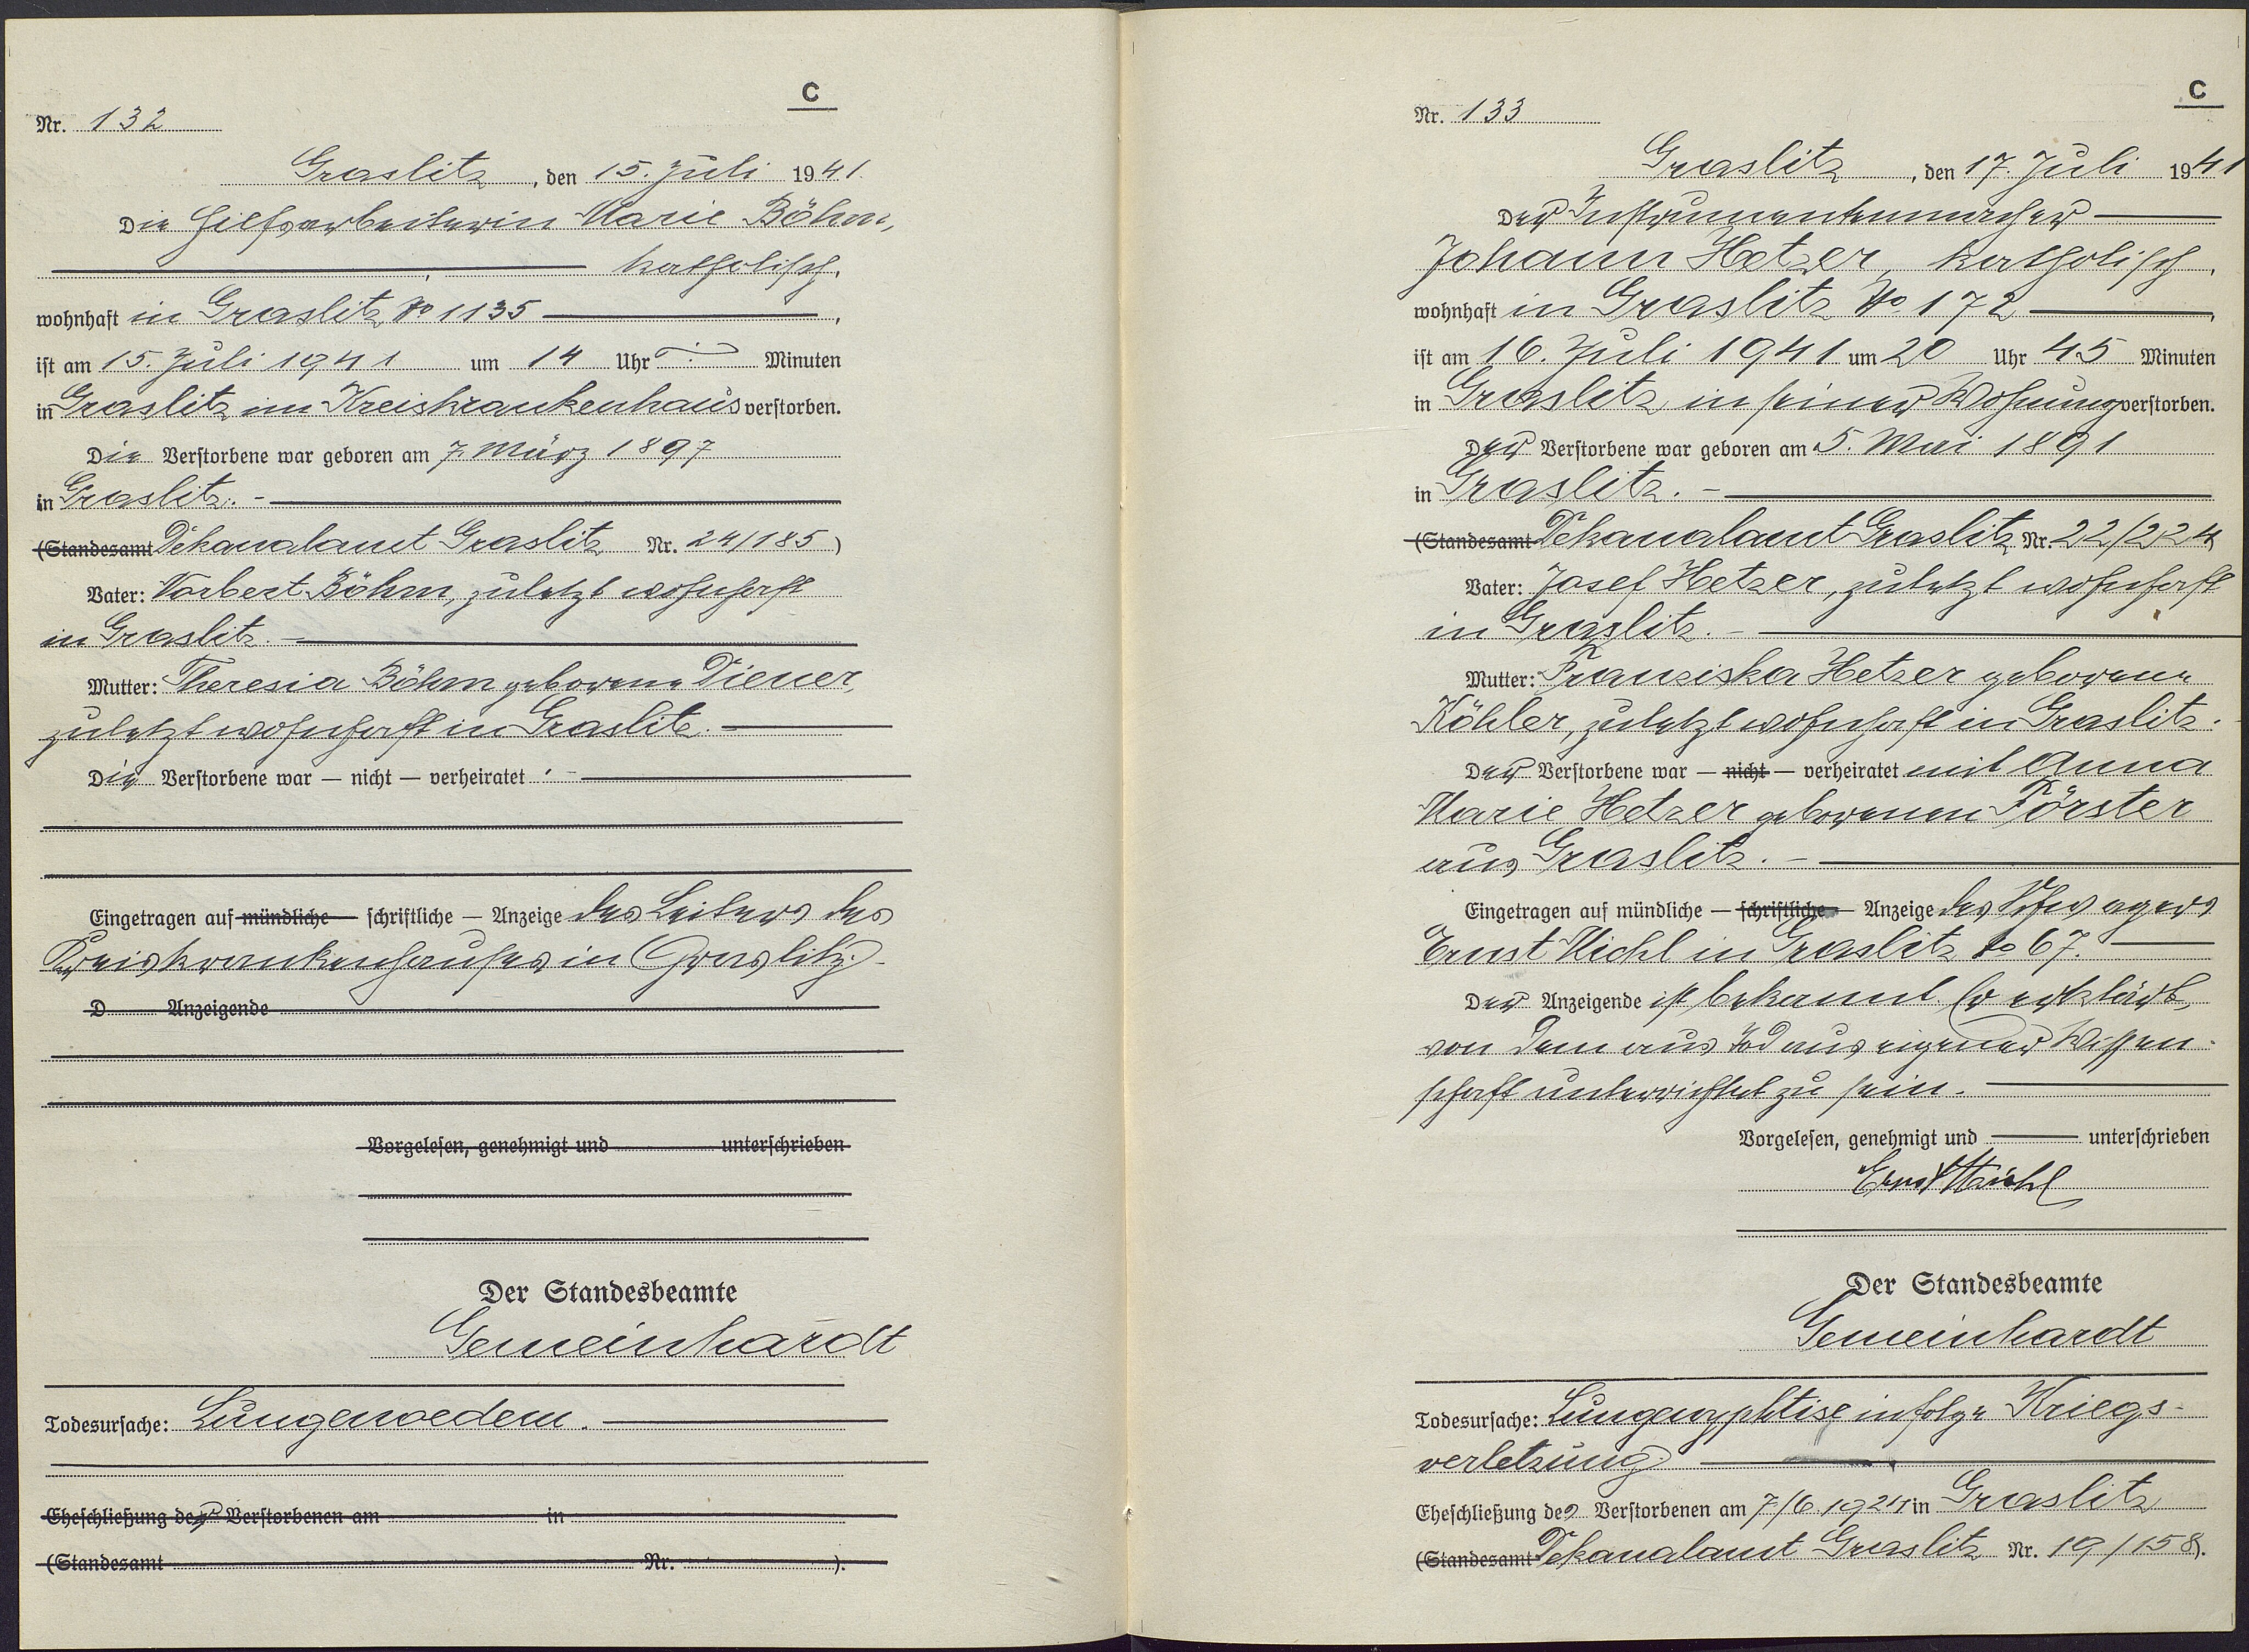 C
Nr. 132
Graslitz, den 15. Juli 1941.
Die Hilfsarbeiterin Marie Böhm,
katholisch,
wohnhaft in Graslitz No 1135,
ist am 15. Juli 1941 um 14 Uhr Minuten
in Graslitz im Kreiskrankenhaus verstorben.
Die Verstorbene war geboren am 7. März 1897
in Graslitz. -
(Standesamt Dekanalamt Graslitz Nr. 24/185)
Vater: Norbert Böhm, zuletzt wohnhaft
in Graslitz. -
Mutter: Theresia Böhm geborene Diener,
zuletzt wohnhaft in Graslitz. -
Die Verstorbene war — nicht — verheiratet. -
Eingetragen auf mündliche — schriftliche — Anzeige des Leiters des
Kreiskrankenhauses in Graslitz. -
D Anzeigende
Vorgelesen, genehmigt und unterschrieben
Der Standesbeamte
Gemeinhardt
Todesursache: Lungenoedem.
Eheschließung der Verstorbenen am in
(Standesamt Nr. ).
C
Nr. 133
Graslitz, den 17. Juli 1941
Der Instrumentenmacher
Johann Hetzer, katholisch,
wohnhaft in Graslitz No. 172,
ist am 16. Juli 1941 um 20 Uhr 45 Minuten
in Graslitz in seiner Wohnung verstorben.
Der Verstorbene war geboren am 5. Mai 1891
in Graslitz. -
(Standesamt Dekanalamt Graslitz Nr. 22/224)
Vater: Josef Hetzer, zuletzt wohnhaft
in Graslitz. -
Mutter: Franziska Hetzer geborene
Köhler, zuletzt wohnhaft in Graslitz.
Der Verstorbene war — nicht — verheiratet mit Anna
Marie Hetzer geborenen Förster
aus Graslitz. -
Eingetragen auf mündliche — schriftliche — Anzeige des Schwagers
Ernst Michl in Graslitz No 67.
Der Anzeigende ist bekannt. Er erklärt,
von dem aus Tod aus eigener Wissen-
schaft unterrichtet zu sein.
Vorgelesen, genehmigt und unterschrieben
Ernst
Der Standesbeamte
Gemeinhardt
Todesursache: infolge Kriegs-
verletzung.
Eheschließung des Verstorbenen am 7/6. 1924 in Graslitz
(Standesamt Dekanalamt Graslitz Nr. 19/158).